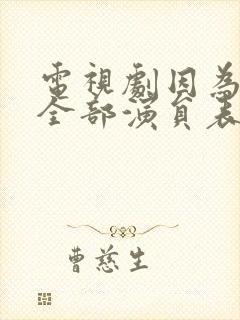 電視劇因為
全部演員表
曹慈生